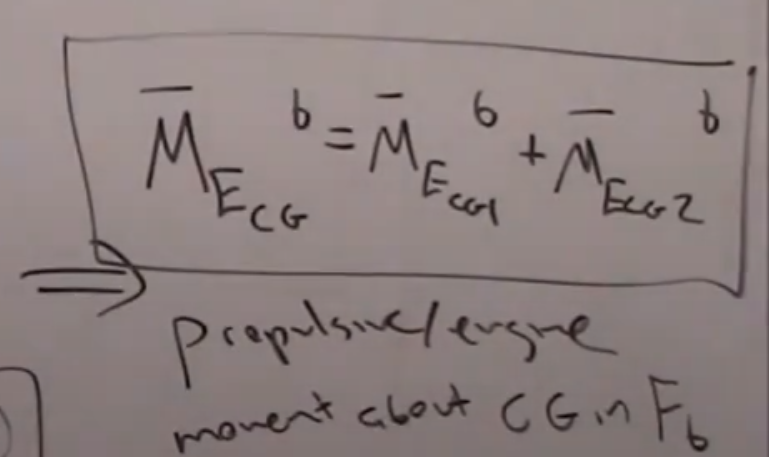 M̄_{E_{CG}}^b = M̄_{E_{CG1}}^b + M̄_{E_{CG2}}^b
⇒ Propulsive/engine
moment about CG in F_b